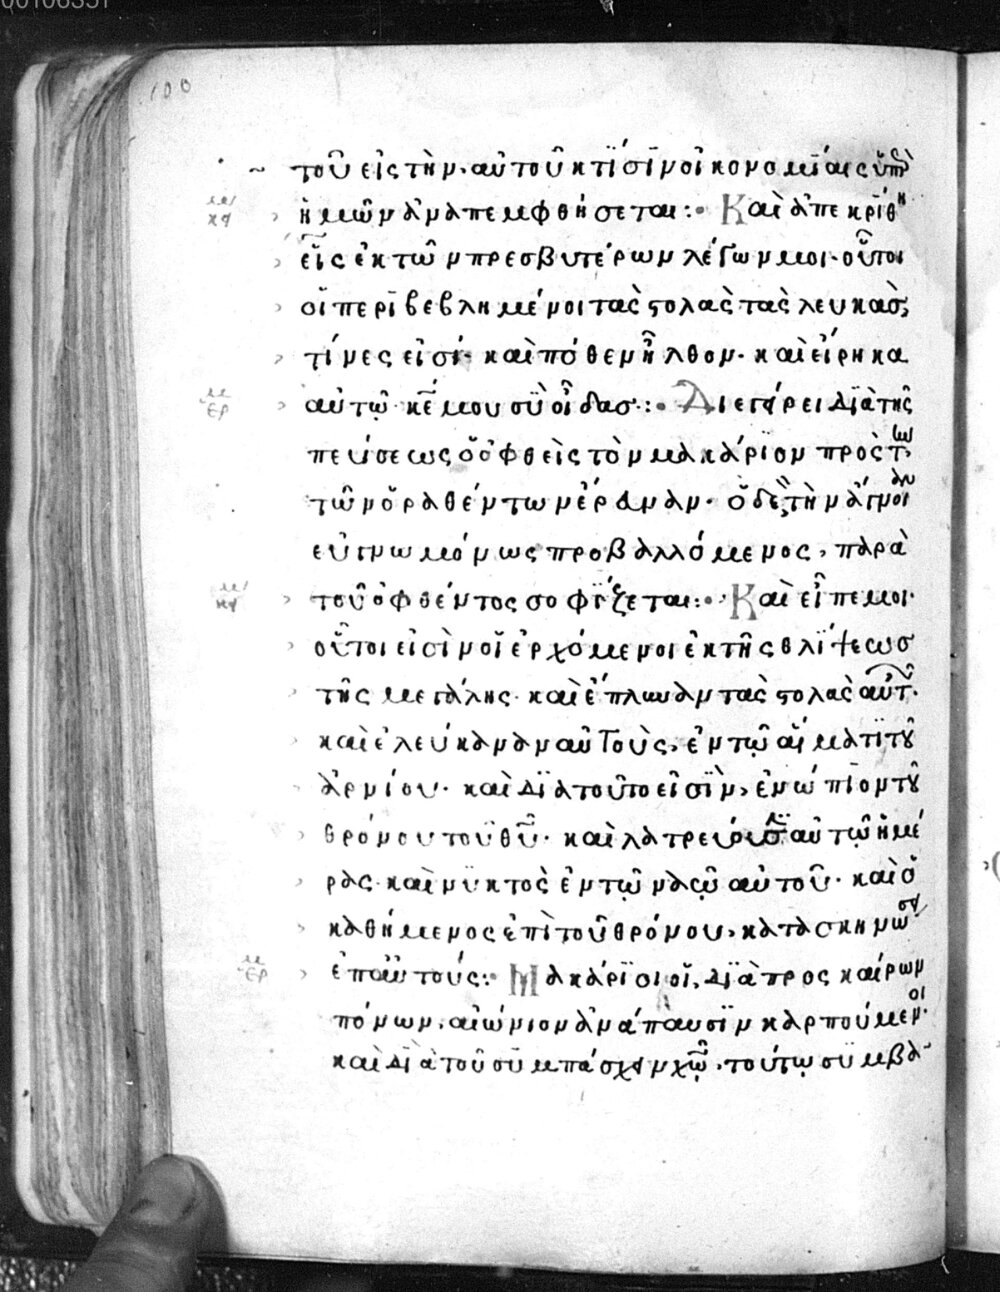 100
~ τοῦ εἰς τὴν αὐτοῦ κτίσϊν οἰκονομΐαις ὑπὲρ
ἡμῶν ἀναπεμφθήσεται:· Καὶ ἀπεκρΐθη
εἷς ἐκ τῶν πρεσβυτέρων λέγων μοι· οὗτοι
οἱ περϊβεβλημένοι τὰς στολὰς τὰς λευκὰς,
τίνες εἰσί· καὶ πόθεν ἦλθον· καὶ εἴρηκα
αὐτῷ κέ μου σὺ οἶδας:· Διεγείρει διὰ τῆς
πεύσεως ὁ ὀφθεὶς τὸν μακάριον πρὸς τ
τῶν ὁραθέντων ἔρευναν· ὁ δὲ τὴν ἄγνοιαν
εὐγνωμόνως προβαλλόμενος, παρὰ
τοῦ ὀφθέντος σοφΐζεται:· Καὶ εἶπε μοι·
οὗτοι εἰσὶν οἱ ἐρχόμενοι ἐκ τῆς θλίψεωσ
τῆς μεγάλης· καὶ ἔπλυναν τὰς στολὰς αὐτ·
καὶ ἐλεύκαναν αὐτοὺς, ἐν τῷ αἵματϊ τοῦ
ἀρνίου· καὶ διὰ τοῦτο εἰσϊν, ἐνώπϊον τοῦ
θρόνου τοῦ θῦ· καὶ λατρεύουσϊ αὐτῷ ἡμέ
ρας καὶ νϋκτὸς ἐν τῷ ναῷ αὐτοῦ· καὶ ὁ
καθήμενος ἐπὶ τοῦ θρόνου, κατασκηνώσει
ἐπ αὐτούς:· Μακάρϊοι οἱ, διὰ προσκαίρων
πόνων, αἰώνιον ἀνάπαυσϊν καρπούμενοι·
καὶ διὰ τοῦ συμπάσχειν χῷ, τούτῳ συμβα